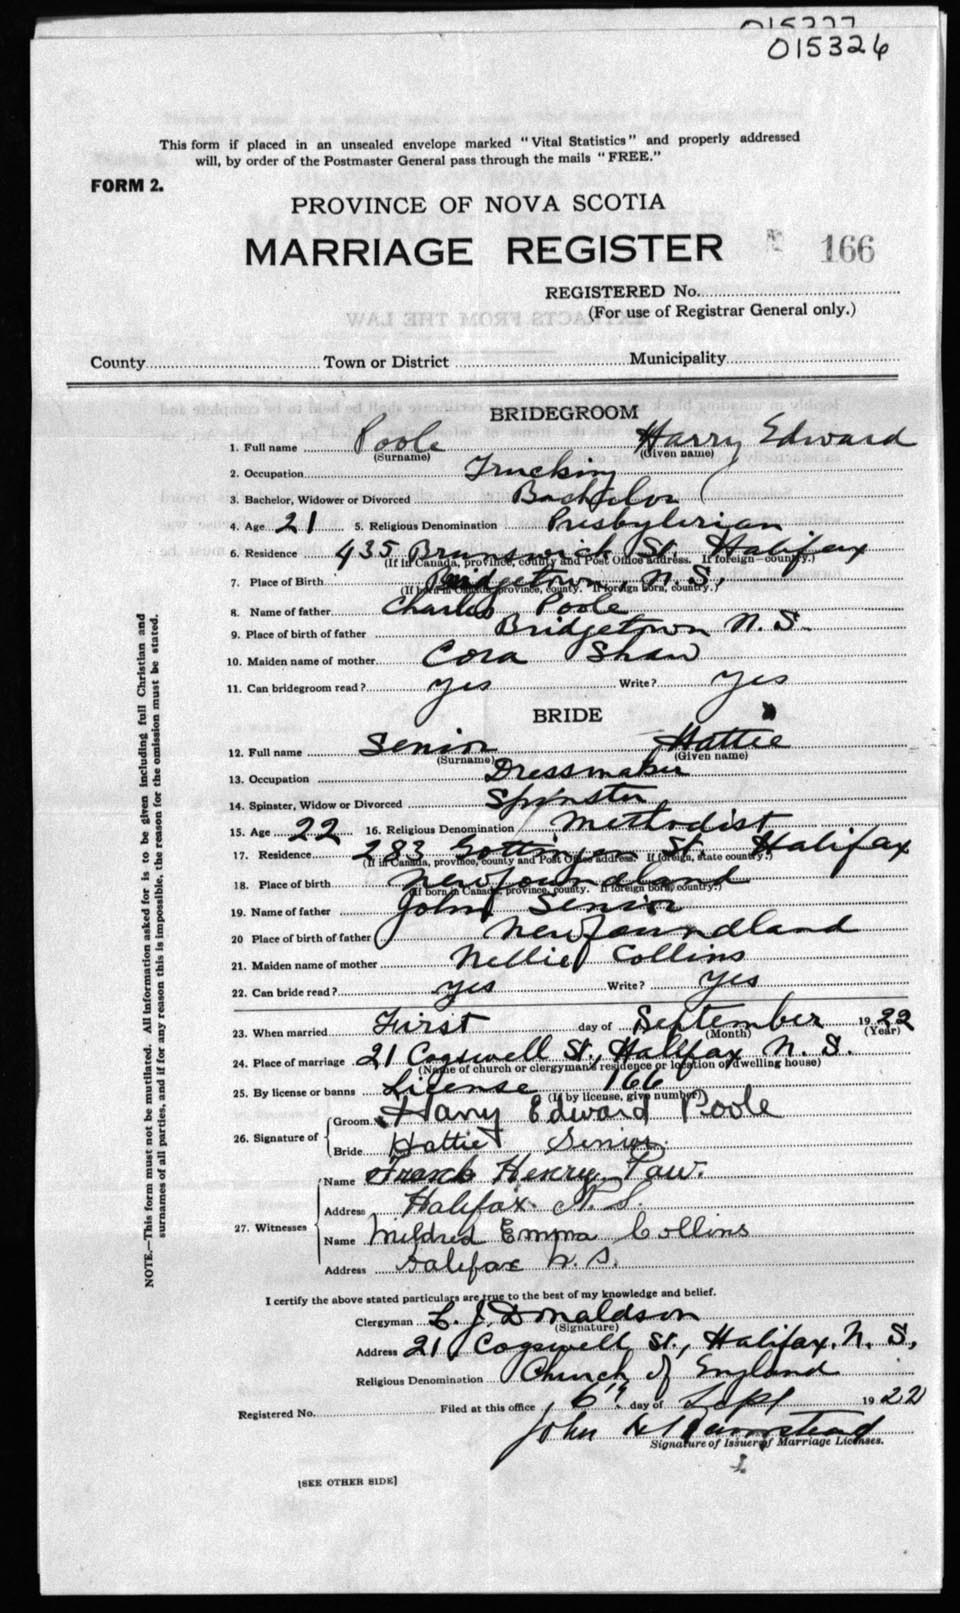 015327
015326
This form if placed in an unsealed envelope marked "Vital Statistics" and properly addressed
will, by order of the Postmaster General pass through the mails "FREE."
FORM 2.
PROVINCE OF NOVA SCOTIA
MARRIAGE REGISTER 166
REGISTERED No.
(For use of Registrar General only.)
County Town or District Municipality
BRIDEGROOM
1. Full name Poole Harry Edward
(Surname) (Given name)
2. Occupation Trucking
3. Bachelor, Widower or Divorced Bachelor
4. Age 21 5. Religious Denomination Presbyterian
6. Residence 435 Brunswick St. Halifax
(If in Canada, province, county and Post Office address. If foreign—country.)
7. Place of Birth Bridgetown, N.S.,
(If born in Canada, province, county. If foreign born, country.)
8. Name of father Charles Poole
9. Place of birth of father Bridgetown N.S.
10. Maiden name of mother Cora Shaw
11. Can bridegroom read? yes Write? yes
BRIDE
12. Full name Senior Hattie
(Surname) (Given name)
13. Occupation Dressmaker
14. Spinster, Widow or Divorced Spinster
15. Age 22 16. Religious Denomination Methodist
17. Residence 283 Gottingen St. Halifax
(If in Canada, province, county and Post Office address. If foreign, state country.)
18. Place of birth Newfoundland
(If born in Canada, province, county. If foreign born, country.)
19. Name of father John Senior
20 Place of birth of father Newfoundland
21. Maiden name of mother Nellie Collins
22. Can bride read? yes Write? yes
23. When married First day of September 1922
(Month) (Year)
24. Place of marriage 21 Cogswell St., Halifax N. S.
(Name of church or clergyman's residence or location of dwelling house)
25. By license or banns License 166
(If by license, give number)
26. Signature of Groom Harry Edward Poole
Bride Hattie Senior.
27. Witnesses Name Frank Henry Paw.
Address Halifax N.S.
Name Mildred Emma Collins
Address Halifax N. S.
I certify the above stated particulars are true to the best of my knowledge and belief.
Clergyman L. J. Donaldson
(Signature)
Address 21 Cogswell St., Halifax, N. S,
Religious Denomination Church of England
Registered No. Filed at this office 6th day of Sept 1922
John
Signature of Issuer of Marriage Licenses.
[SEE OTHER SIDE]
NOTE.—This form must not be mutilated. All information asked for is to be given including full Christian and
surnames of all parties, and if for any reason this is impossible, the reason for the omission must be stated.